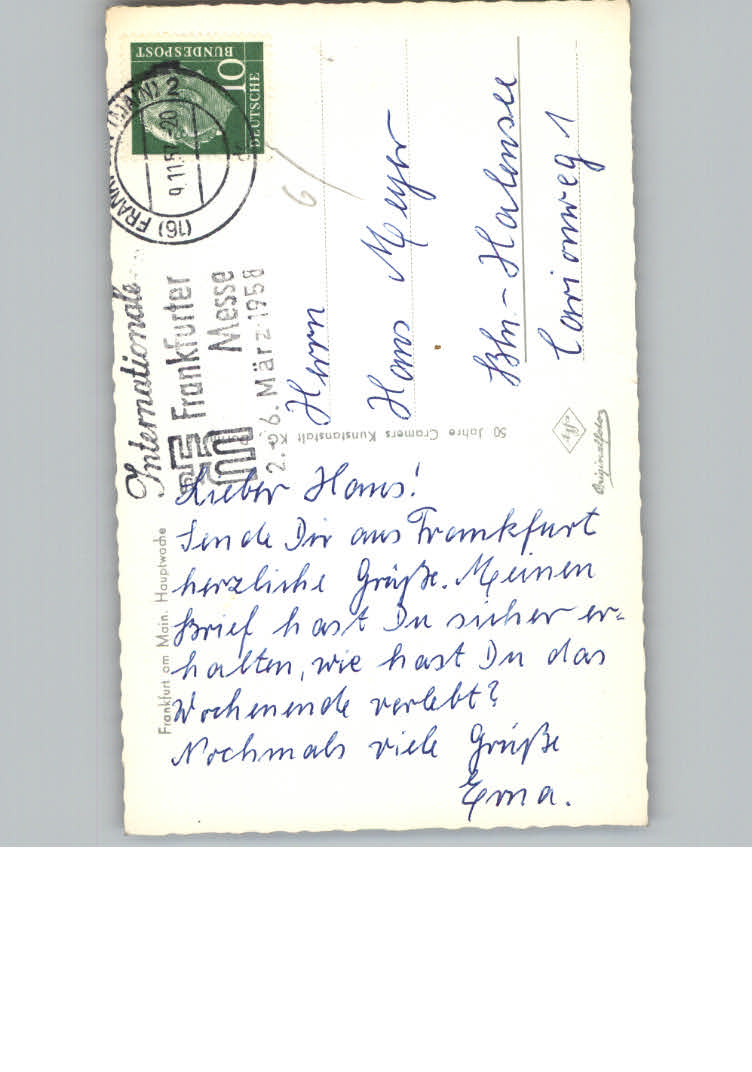 DEUTSCHE
BUNDESPOST
10
(16) FRANKFURT (MAIN) 2
9.11.57-20
Internationale
Frankfurter
Messe
2.-6. März 1958
Herrn
Hans Meyer
Bln.-Halensee
1
50 Jahre Cramers Kunstanstalt
Agfa
Originalfoto
Frankfurt am Main. Hauptwache
Lieber Hans!
Sende Dir aus Frankfurt
herzliche Grüße. Meinen
Brief hast Du sicher er-
halten, wie hast Du das
Wochenende verlebt?
Nochmals viele Grüße
Erna.